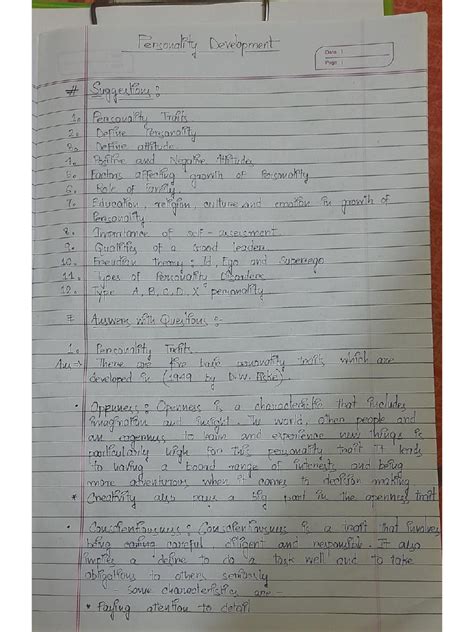 Personality Development
Date :
Page :
# Suggestions :
1. Personality Traits
2. Define Personality
3. Define attitude
4. Positive and Negative Attitude
5. Factors affecting growth of Personality
6. Role of family.
7. Education, religion, culture and emotion in growth of
Personality.
8. Importance of self-assessment.
9. Qualities of a Good leader
10. Freudian theory : Id, Ego and Superego
11. Types of Personality Disorders
12. Type A, B, C, D, X personality.
Answers with Questions :-
1. Personality Traits.
Ans → There are five basic personality traits which are
developed in (1949 by D.W. Fiske).
• Oppeness : Openness is a characteristic that includes
imagination and insight. The world, other people and
an eagerness to learn and experience new things is
particularly high for this personality trait It leads
to having a board range of interests and being
more adventurous when it comes to decision making
* Creativity also pays a big part in the openness trait
• Conscientiousness : Conscientiousness is a trait that involves
being careful, diligent and responsible. It also
implies a define to do a task well and to take
obligations to others seriously
some characteristics are -
* Paying attention to detail